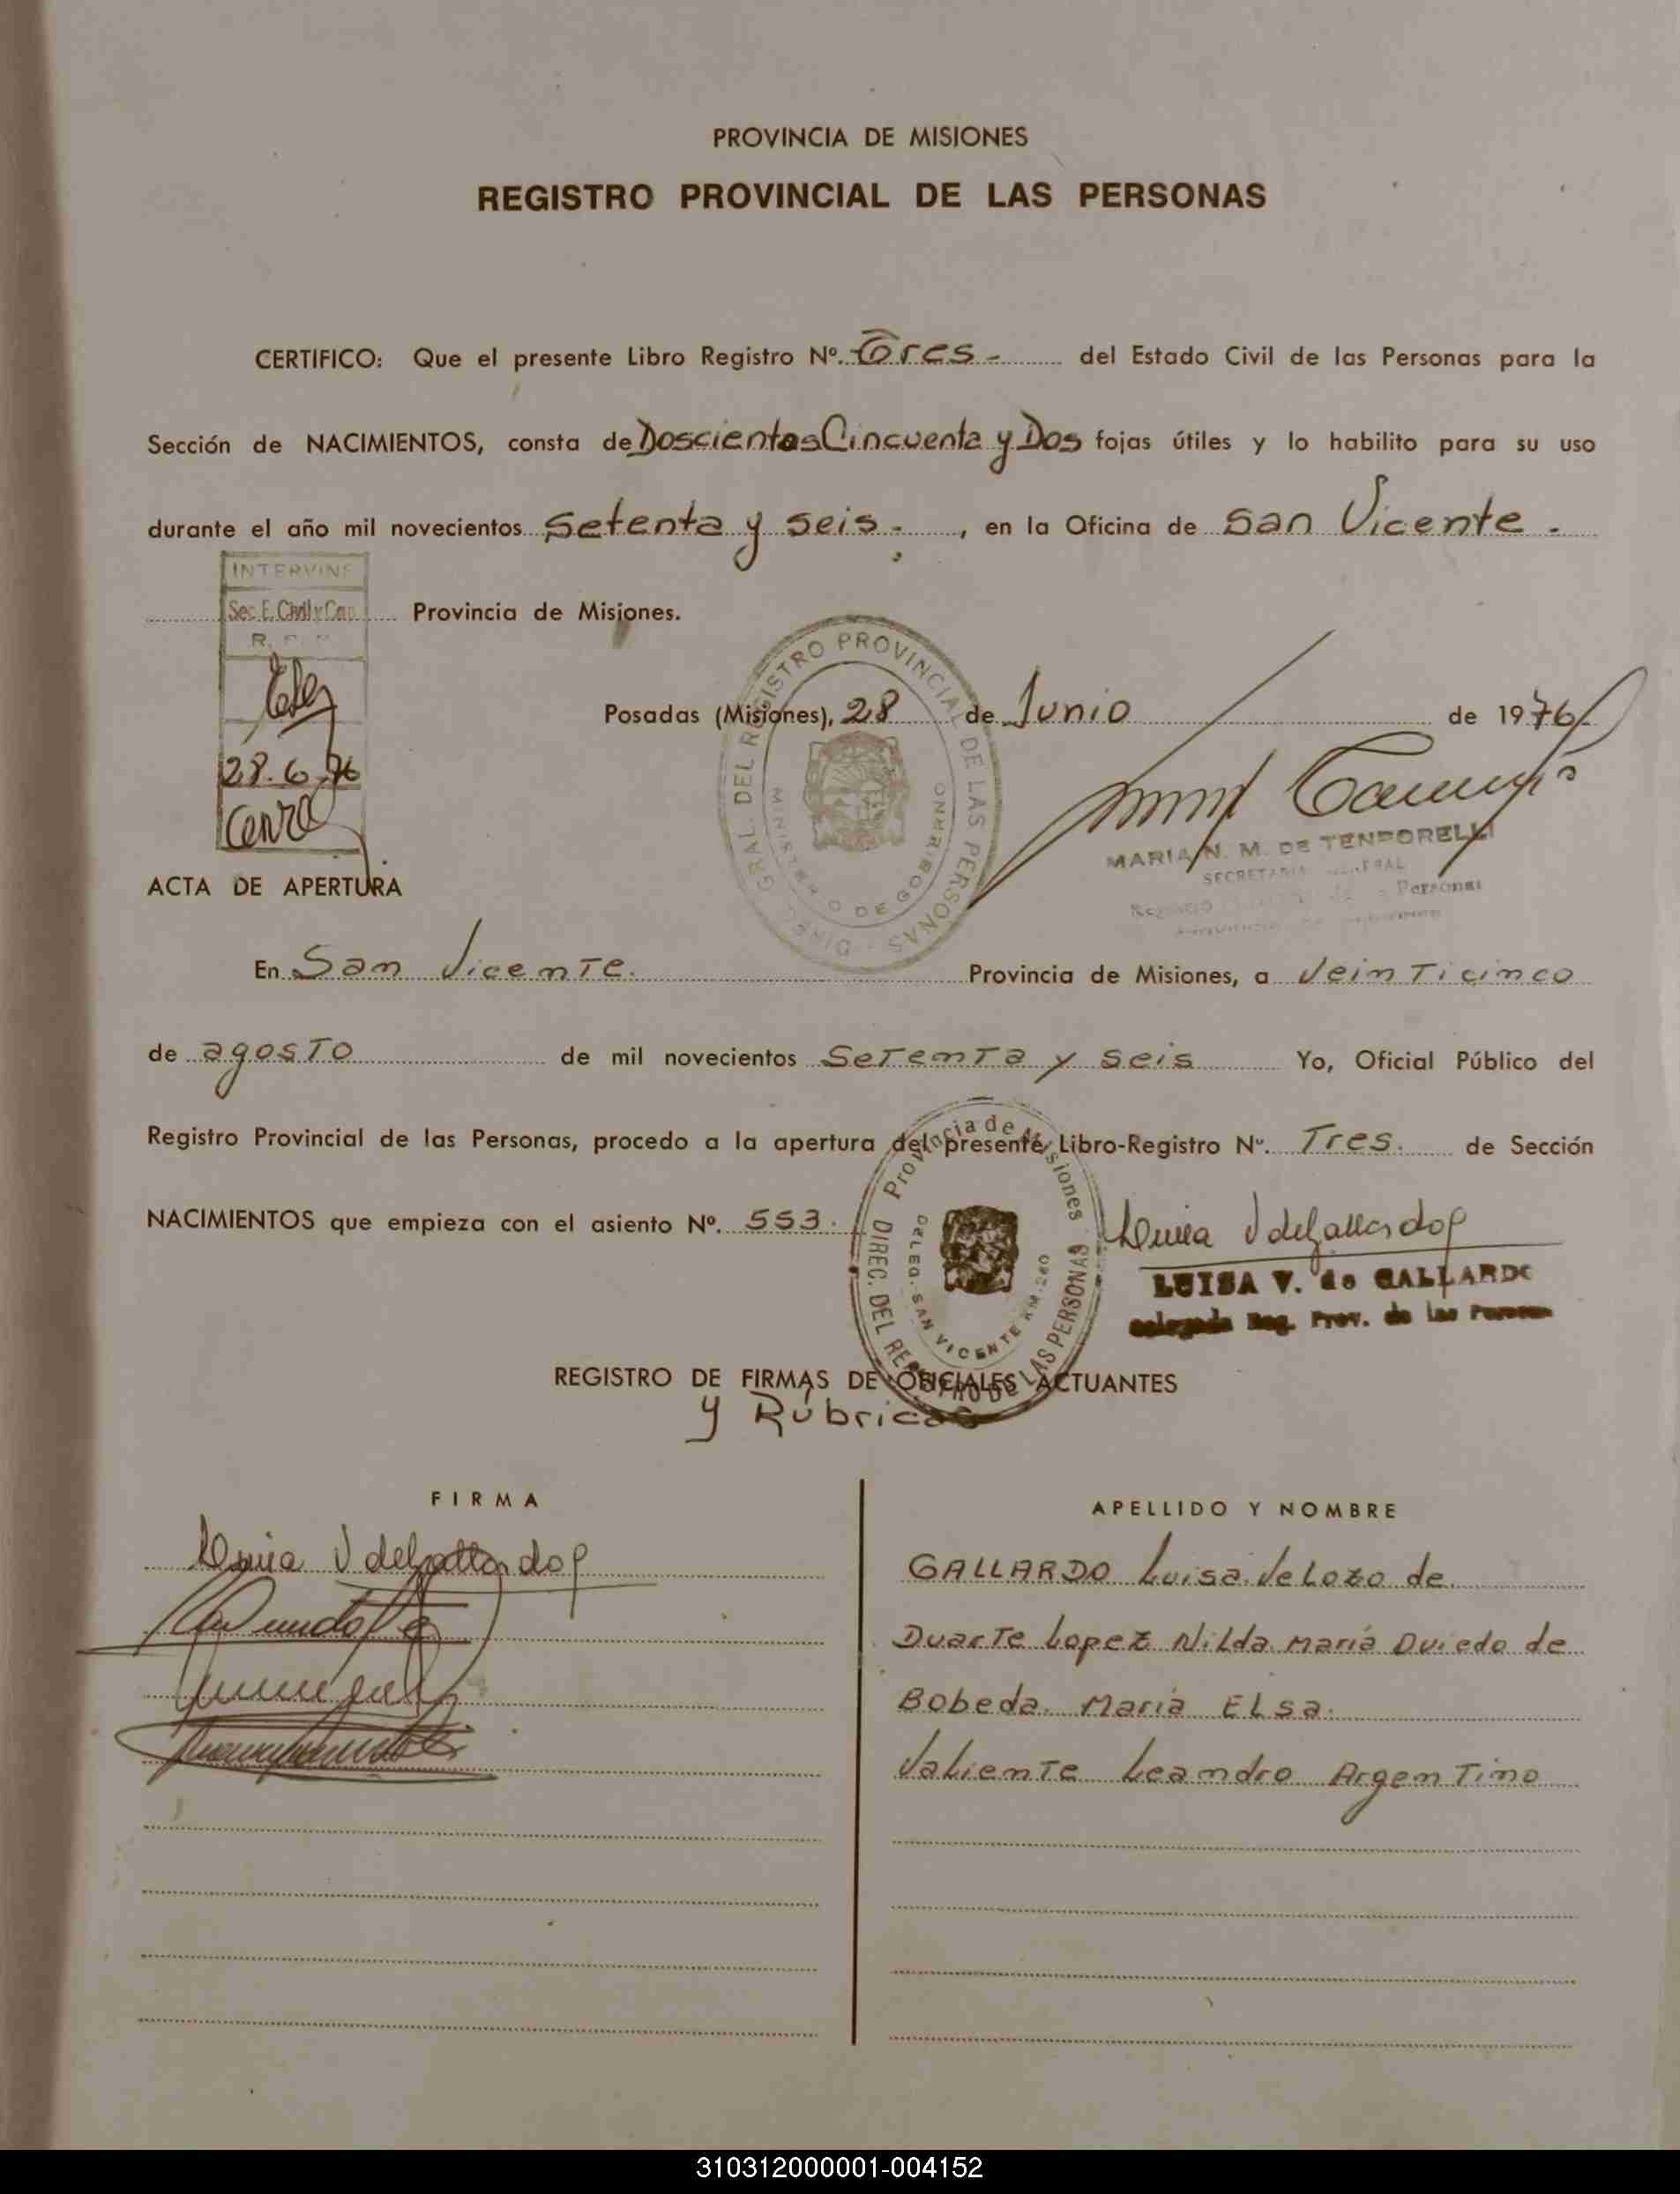 PROVINCIA DE MISIONES
REGISTRO PROVINCIAL DE LAS PERSONAS
CERTIFICO: Que el presente Libro Registro Nº. Tres.- del Estado Civil de las Personas para la
Sección de NACIMIENTOS, consta de Doscientas Cincuenta y Dos fojas útiles y lo habilito para su uso
durante el año mil novecientos Setenta y seis.-, en la Oficina de San Vicente.-
INTERVINE
Sec. E. Civil y Cap.
Provincia de Misiones.
Posadas (Misiones), 28 de Junio de 1976.-
28.6.76
DIREC. GRAL. DEL REGISTRO PROVINCIAL DE LAS PERSONAS
MINISTERIO DE GOBIERNO
MARIA N. M. DE TEMPORELLI
SECRETARIA GENERAL
ACTA DE APERTURA
En San Vicente. Provincia de Misiones, a Veinticinco
de agosto de mil novecientos Setenta y Seis Yo, Oficial Público del
Registro Provincial de las Personas, procedo a la apertura del presente Libro-Registro Nº. Tres. de Sección
NACIMIENTOS que empieza con el asiento Nº. 553.
Provincia de Misiones
DIREC. DEL REGISTRO DE LAS PERSONAS
DELEG. SAN VICENTE KM. 260
Luisa V de Gallardo
LUISA V. de GALLARDO
Delegada Reg. Prov. de las Personas
REGISTRO DE FIRMAS DE OFICIALES ACTUANTES
y Rúbricas
FIRMA
APELLIDO Y NOMBRE
Luisa V de Gallardo
GALLARDO Luisa Velozo de
Duarte Lopez Nilda María Oviedo de
Bobeda María Elsa.
Valiente Leandro Argentino
310312000001-004152